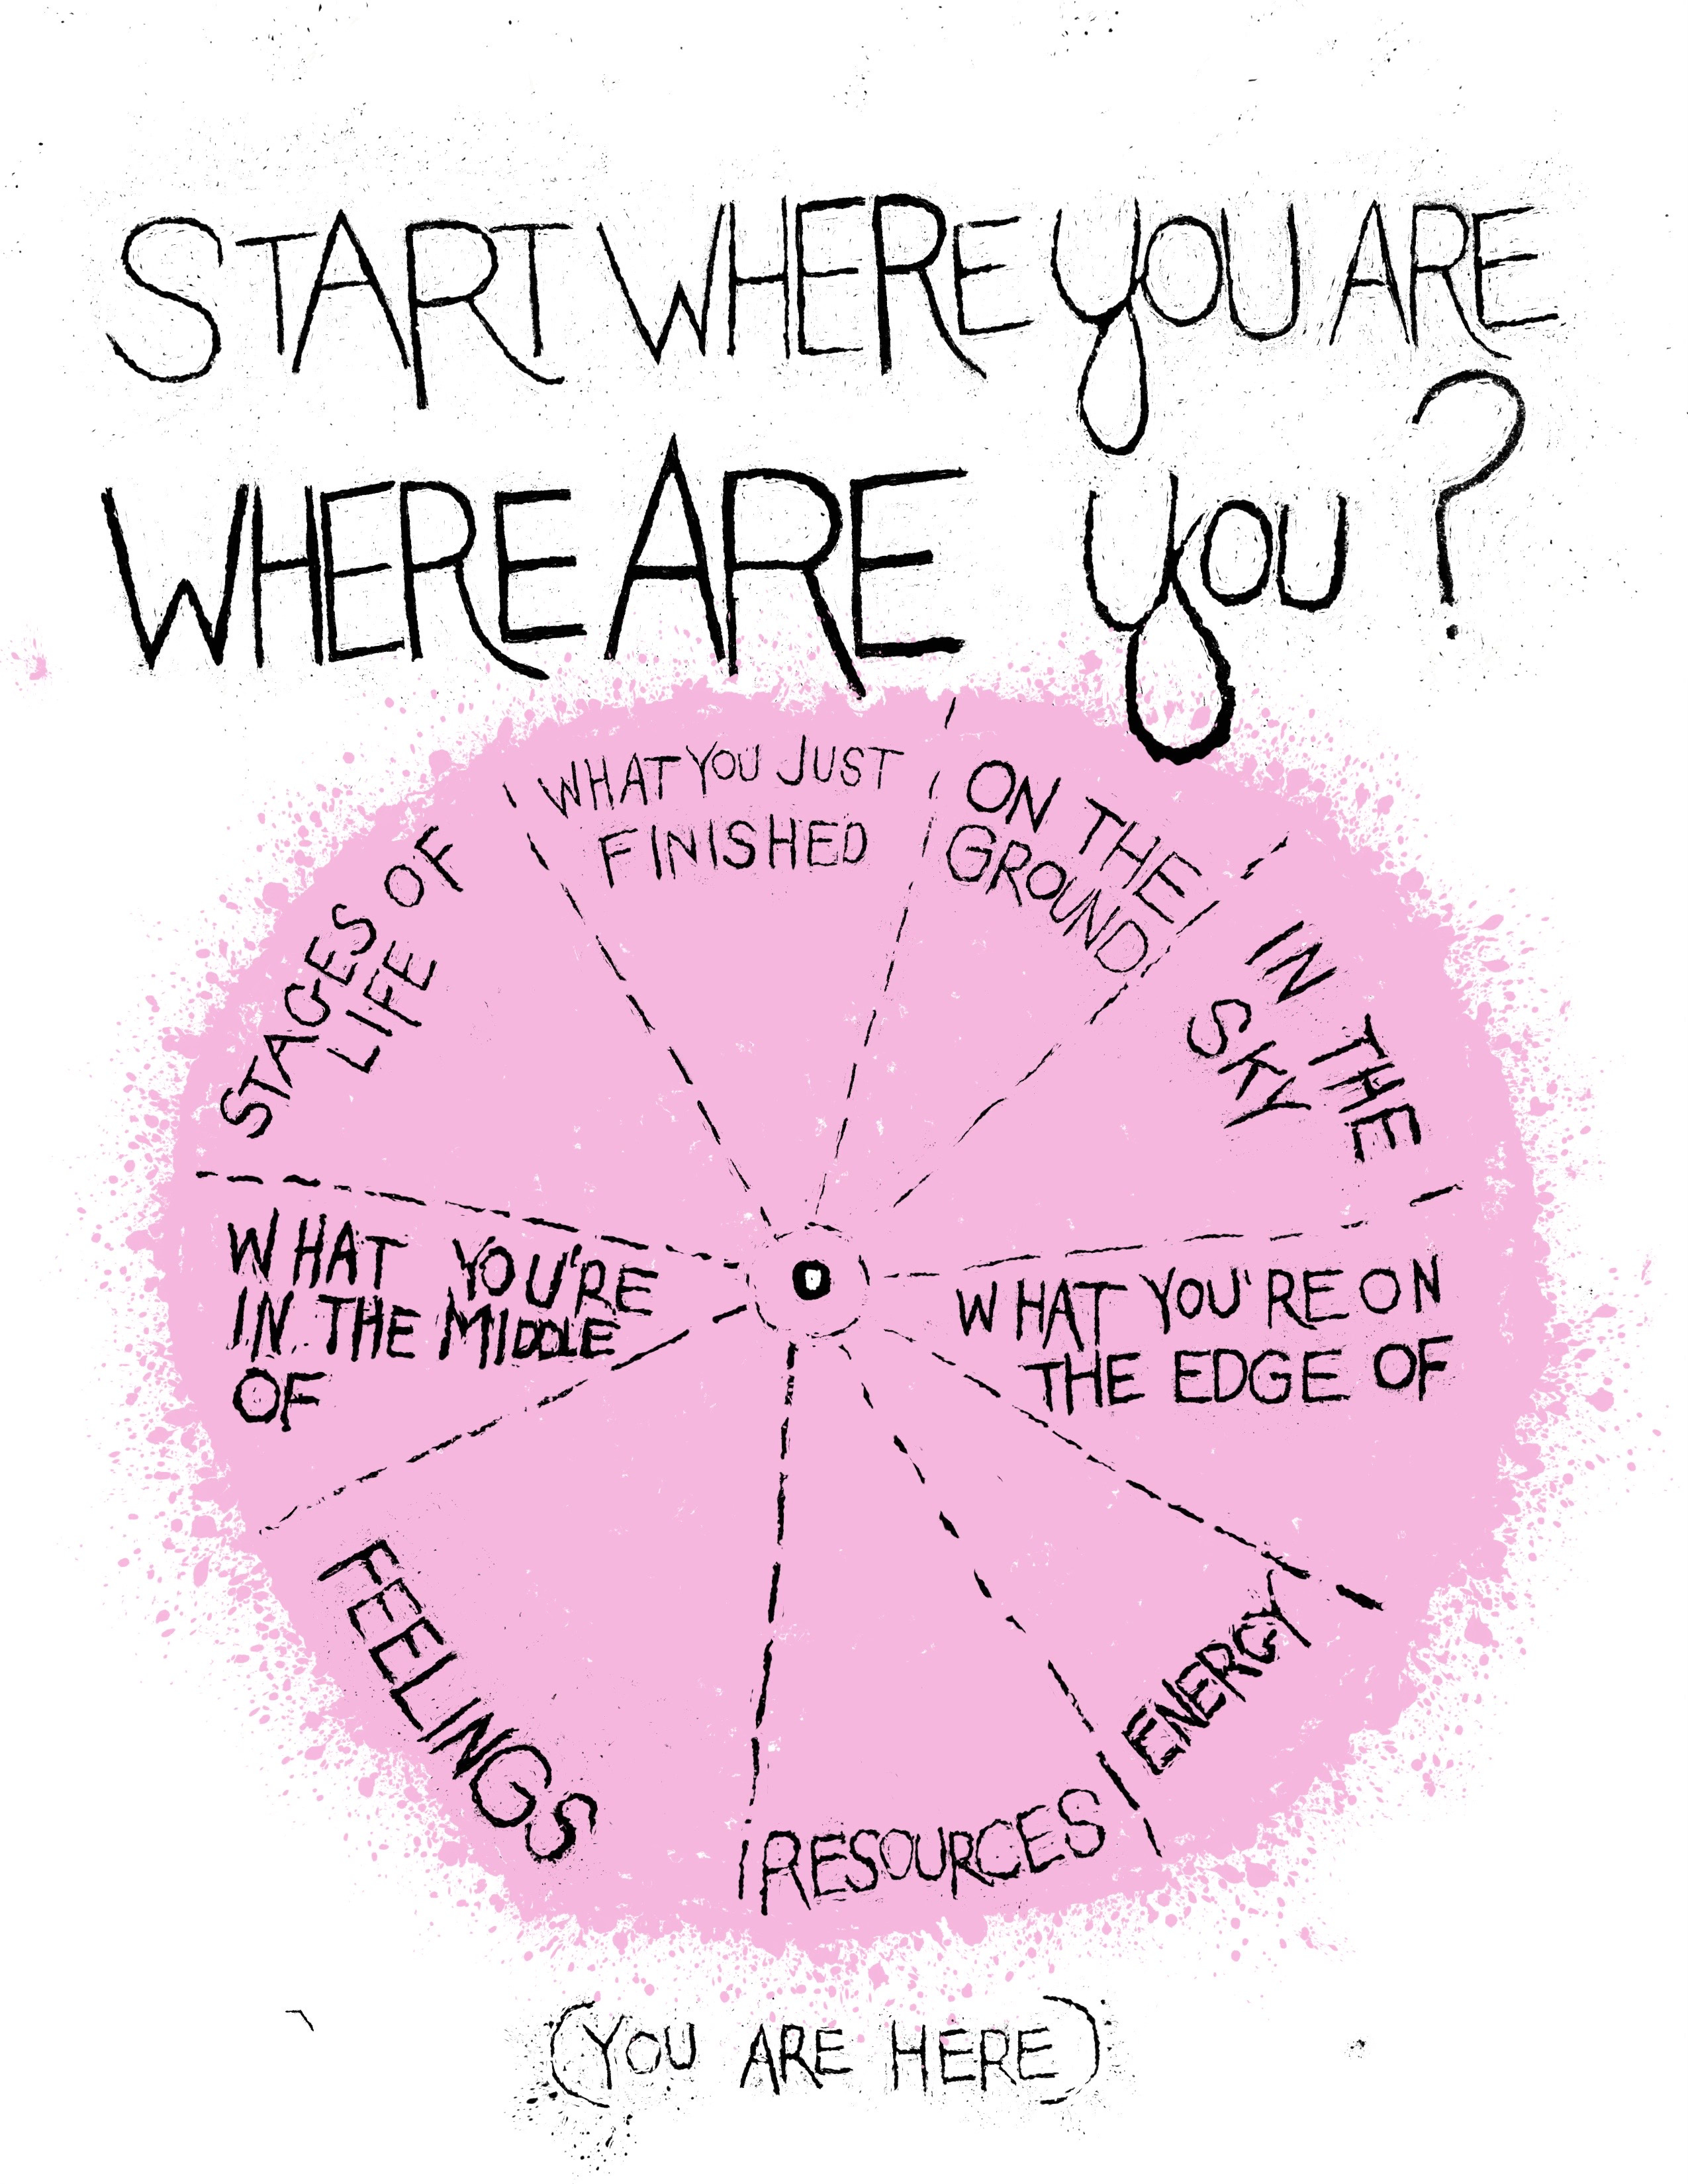 START WHERE YOU ARE
WHERE ARE YOU?
WHAT YOU JUST
FINISHED
ON THE
GROUND
IN THE
SKY
WHAT YOU'RE ON
THE EDGE OF
ENERGY
RESOURCES
FEELINGS
WHAT YOU'RE
IN THE MIDDLE
OF
STAGES OF
LIFE
(YOU ARE HERE)